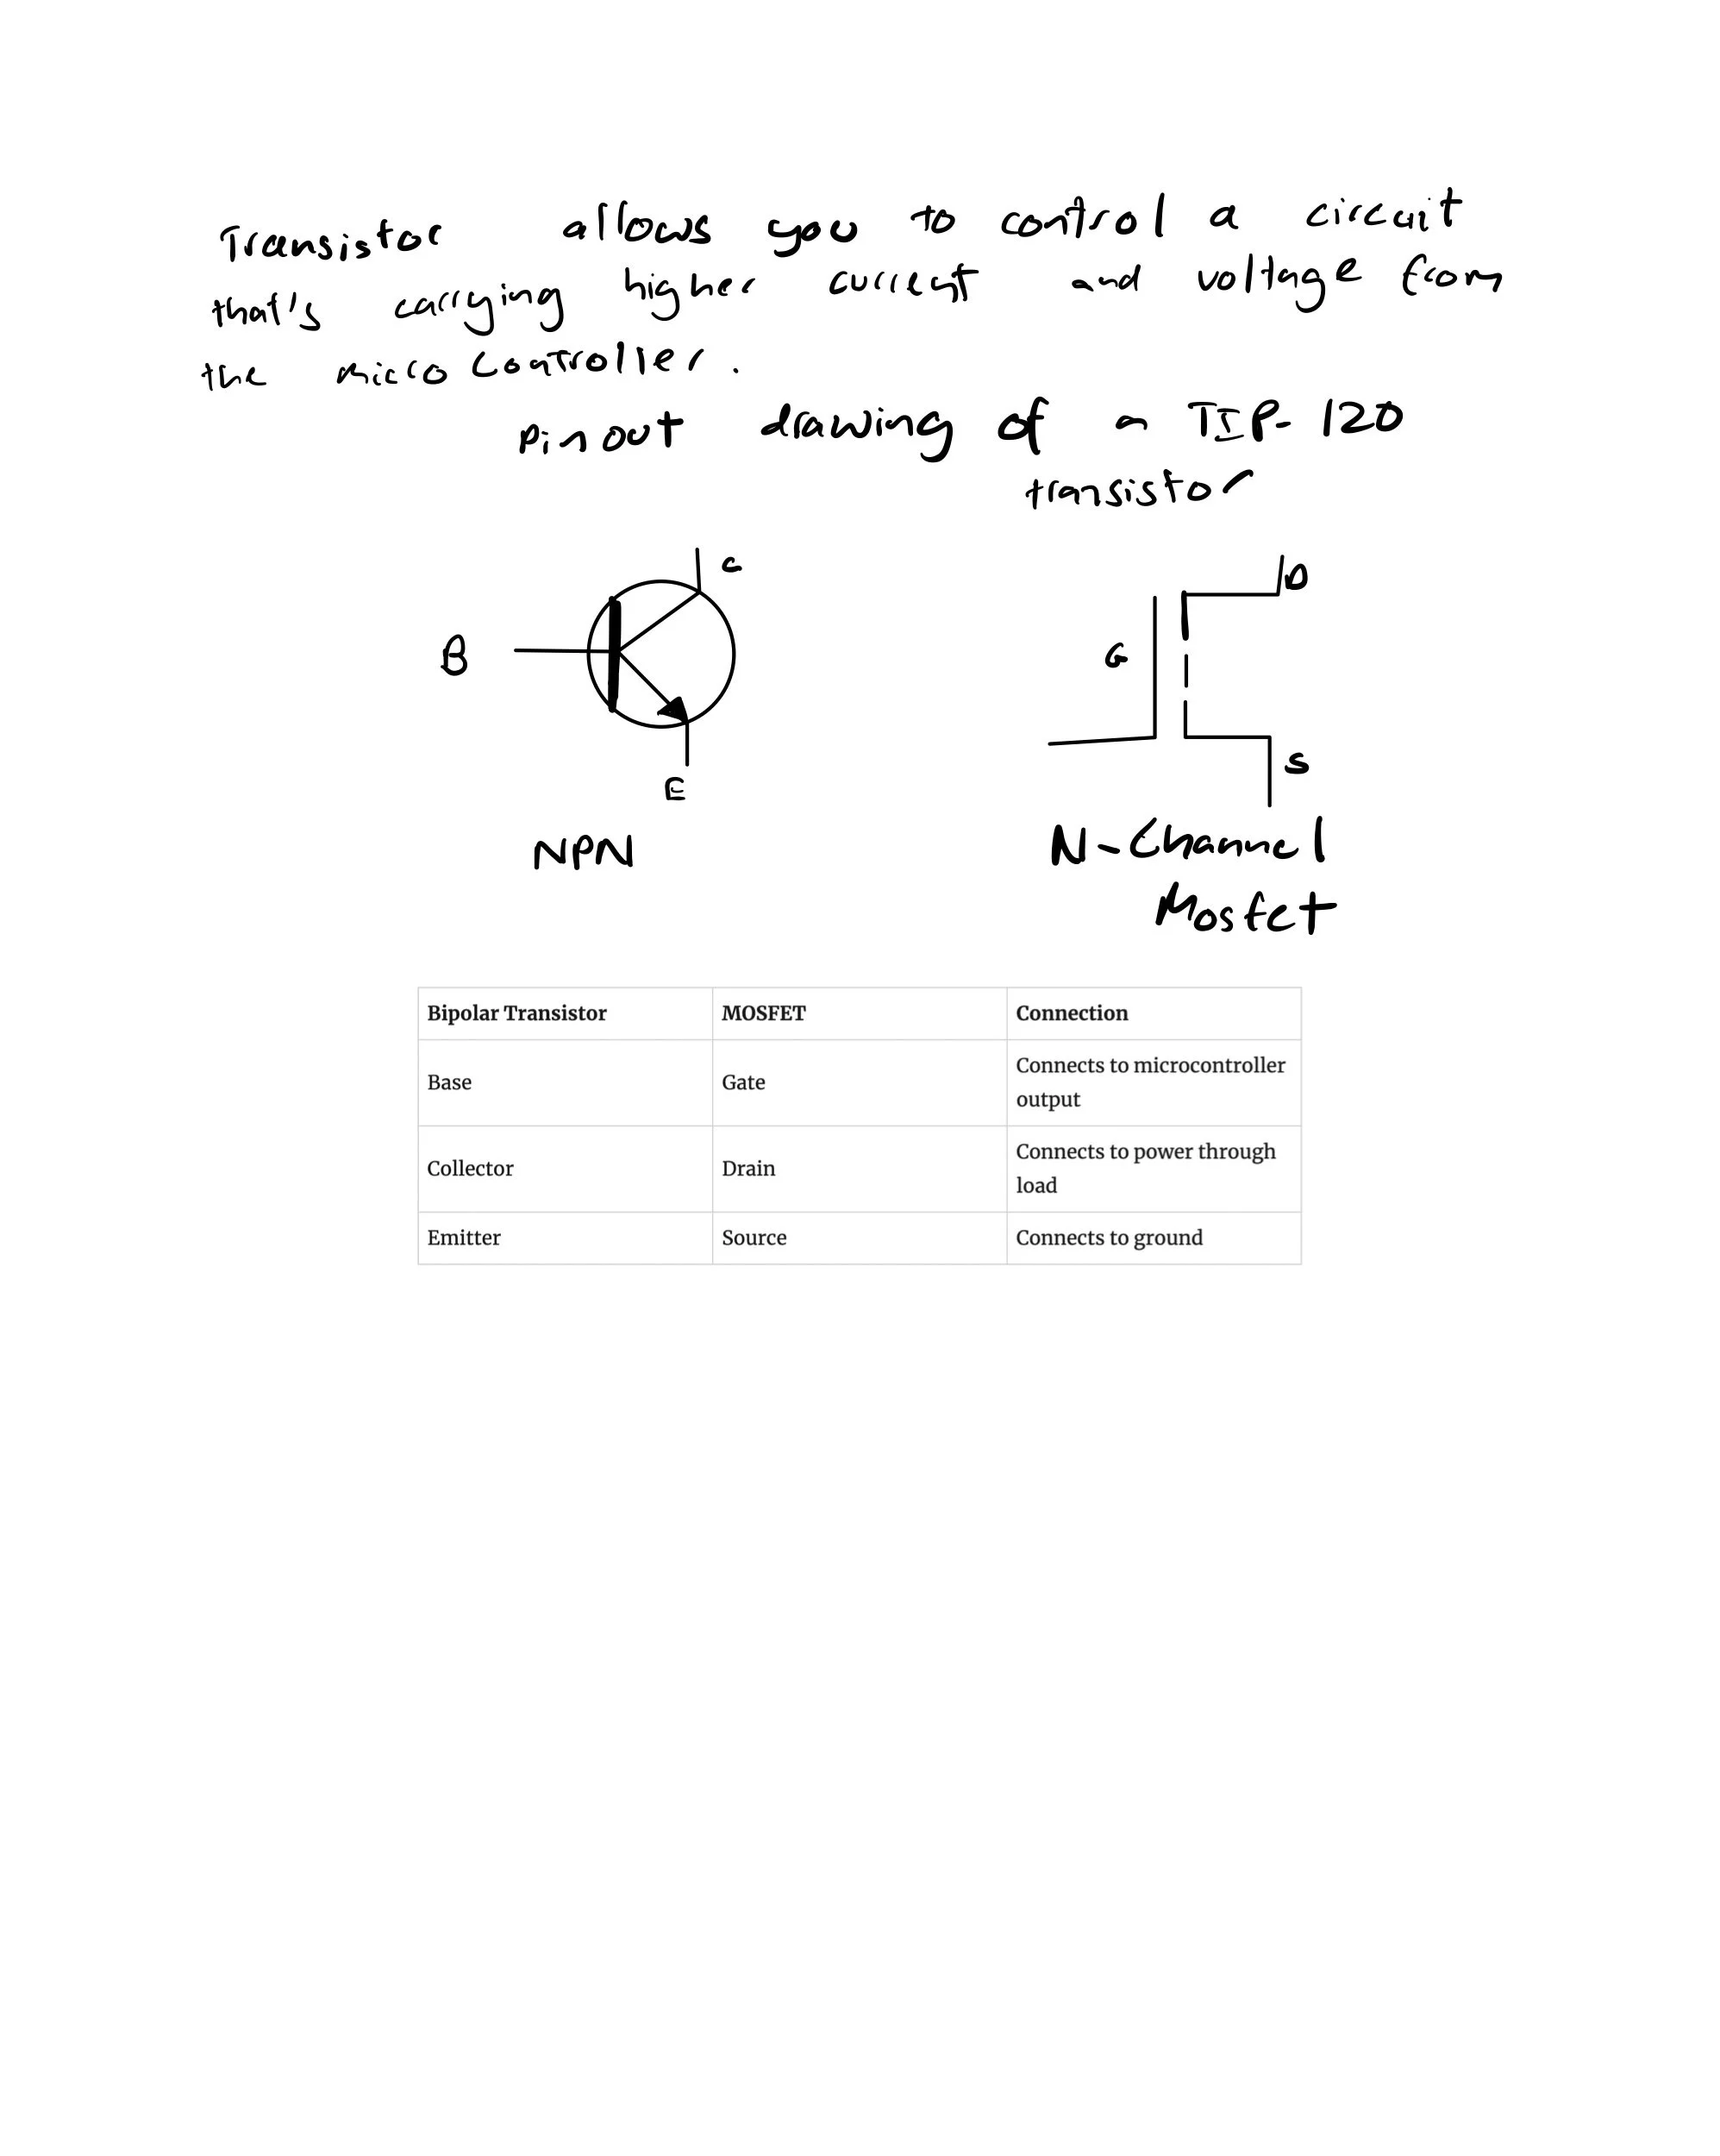 Transistor allows you to control a circuit
that's carrying higher current and voltage from
the micro controller.
Pin out drawing of a TIP-120
transistor
C
B
E
NPN
D
G
S
N-Channel
Mosfet
Bipolar Transistor MOSFET Connection
Base Gate Connects to microcontroller
output
Collector Drain Connects to power through
load
Emitter Source Connects to ground